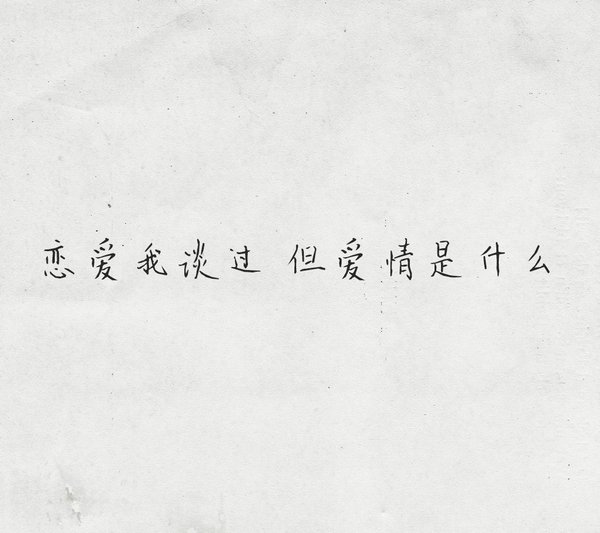 恋爱我谈过 但爱情是什么